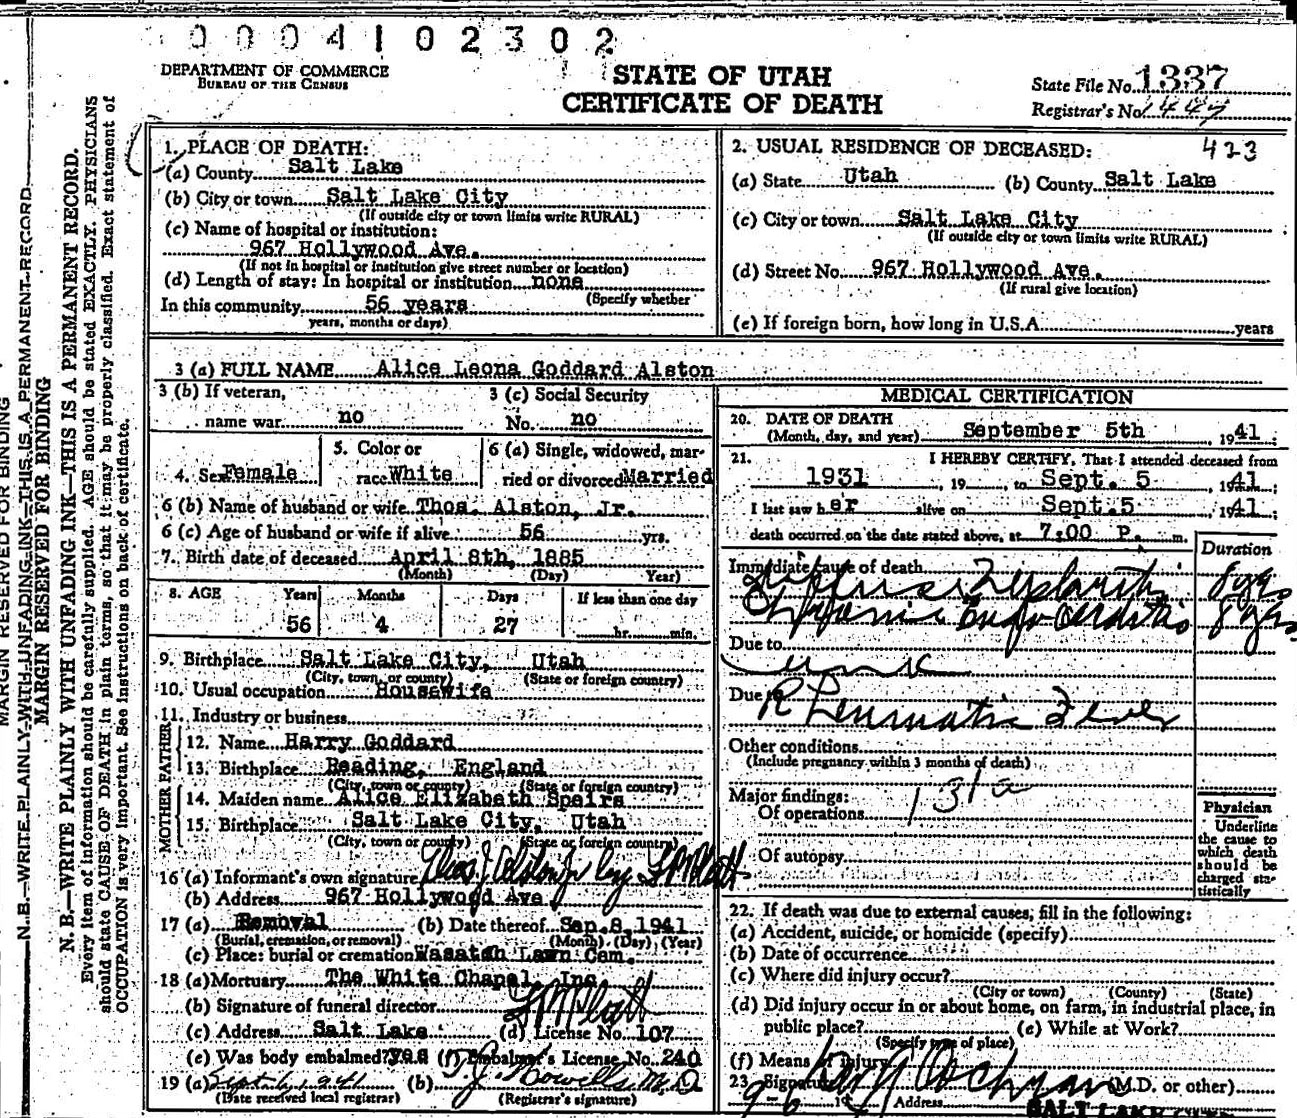 0004102302
DEPARTMENT OF COMMERCE
BUREAU OF THE CENSUS
STATE OF UTAH
CERTIFICATE OF DEATH
State File No. 1337
Registrar's No. 1447
MARGIN RESERVED FOR BINDING
N.B.—WRITE PLAINLY WITH UNFADING INK—THIS IS A PERMANENT RECORD
MARGIN RESERVED FOR BINDING
N.B.—WRITE PLAINLY WITH UNFADING INK—THIS IS A PERMANENT RECORD.
Every item of information should be carefully supplied. AGE should be stated EXACTLY. PHYSICIANS
should state CAUSE OF DEATH in plain terms, so that it may be properly classified. Exact statement of
OCCUPATION is very important. See instructions on back of certificate.
1. PLACE OF DEATH:
(a) County Salt Lake
(b) City or town Salt Lake City
(If outside city or town limits write RURAL)
(c) Name of hospital or institution:
967 Hollywood Ave.
(If not in hospital or institution give street number or location)
(d) Length of stay: In hospital or institution none
(Specify whether
In this community 56 years
years, months or days)
2. USUAL RESIDENCE OF DECEASED: 423
(a) State Utah (b) County Salt Lake
(c) City or town Salt Lake City
(If outside city or town limits write RURAL)
(d) Street No. 967 Hollywood Ave.
(If rural give location)
(e) If foreign born, how long in U.S.A. years
3 (a) FULL NAME Alice Leona Goddard Alston
3 (b) If veteran, 3 (c) Social Security
name war no No. no
5. Color or 6 (a) Single, widowed, mar-
4. Sex Female race White ried or divorced Married
6 (b) Name of husband or wife Thos. Alston, Jr.
6 (c) Age of husband or wife if alive 56 yrs.
7. Birth date of deceased April 8th, 1885
(Month) (Day) Year)
8. AGE Years Months Days If less than one day
56 4 27 hr. min.
9. Birthplace Salt Lake City, Utah
(City, town, or county) (State or foreign country)
10. Usual occupation Housewife
11. Industry or business
FATHER
12. Name Harry Goddard
13. Birthplace Reading, England
(City, town or county) (State or foreign country)
MOTHER
14. Maiden name Alice Elizabeth Speirs
15. Birthplace Salt Lake City, Utah
(City, town or county) (State or foreign country)
16 (a) Informant's own signature Thos J Alston Jr by
(b) Address 967 Hollywood Ave
17 (a) Removal (b) Date thereof Sep. 8, 1941
(Burial, cremation, or removal) (Month) (Day) (Year)
(c) Place: burial or cremation Wasatch Lawn Cem.
18 (a) Mortuary The White Chapel, Inc
(b) Signature of funeral director
(c) Address Salt Lake (d) License No. 107
(e) Was body embalmed? yes (f) Embalmer's License No. 240
19 (a) Sept 6, 1941 (b) T. J. Howells M.D.
(Date received local registrar) (Registrar's signature)
MEDICAL CERTIFICATION
20. DATE OF DEATH
(Month, day, and year) September 5th 1941
21. I HEREBY CERTIFY, That I attended deceased from
1931, 19 , to Sept. 5, 1941;
I last saw her alive on Sept. 5 1941;
death occurred on the date stated above, at 7:00 P. m.
Duration
Immediate cause of death
Diffuse Nephritis 8 yrs
Chronic Endo Carditis 8 yrs
Due to
Due to Rheumatic Fever
Other conditions
(Include pregnancy within 3 months of death)
Major findings: 131a
Of operations
Of autopsy
Physician
Underline
the cause to
which death
should be
charged sta-
tistically
22. If death was due to external causes, fill in the following:
(a) Accident, suicide, or homicide (specify)
(b) Date of occurrence
(c) Where did injury occur?
(City or town) (County) (State)
(d) Did injury occur in or about home, on farm, in industrial place, in
public place? (e) While at Work?
(Specify type of place)
(f) Means of Injury
23 Signature (M.D. or other)
9-6 19 Address SALT LAKE CITY